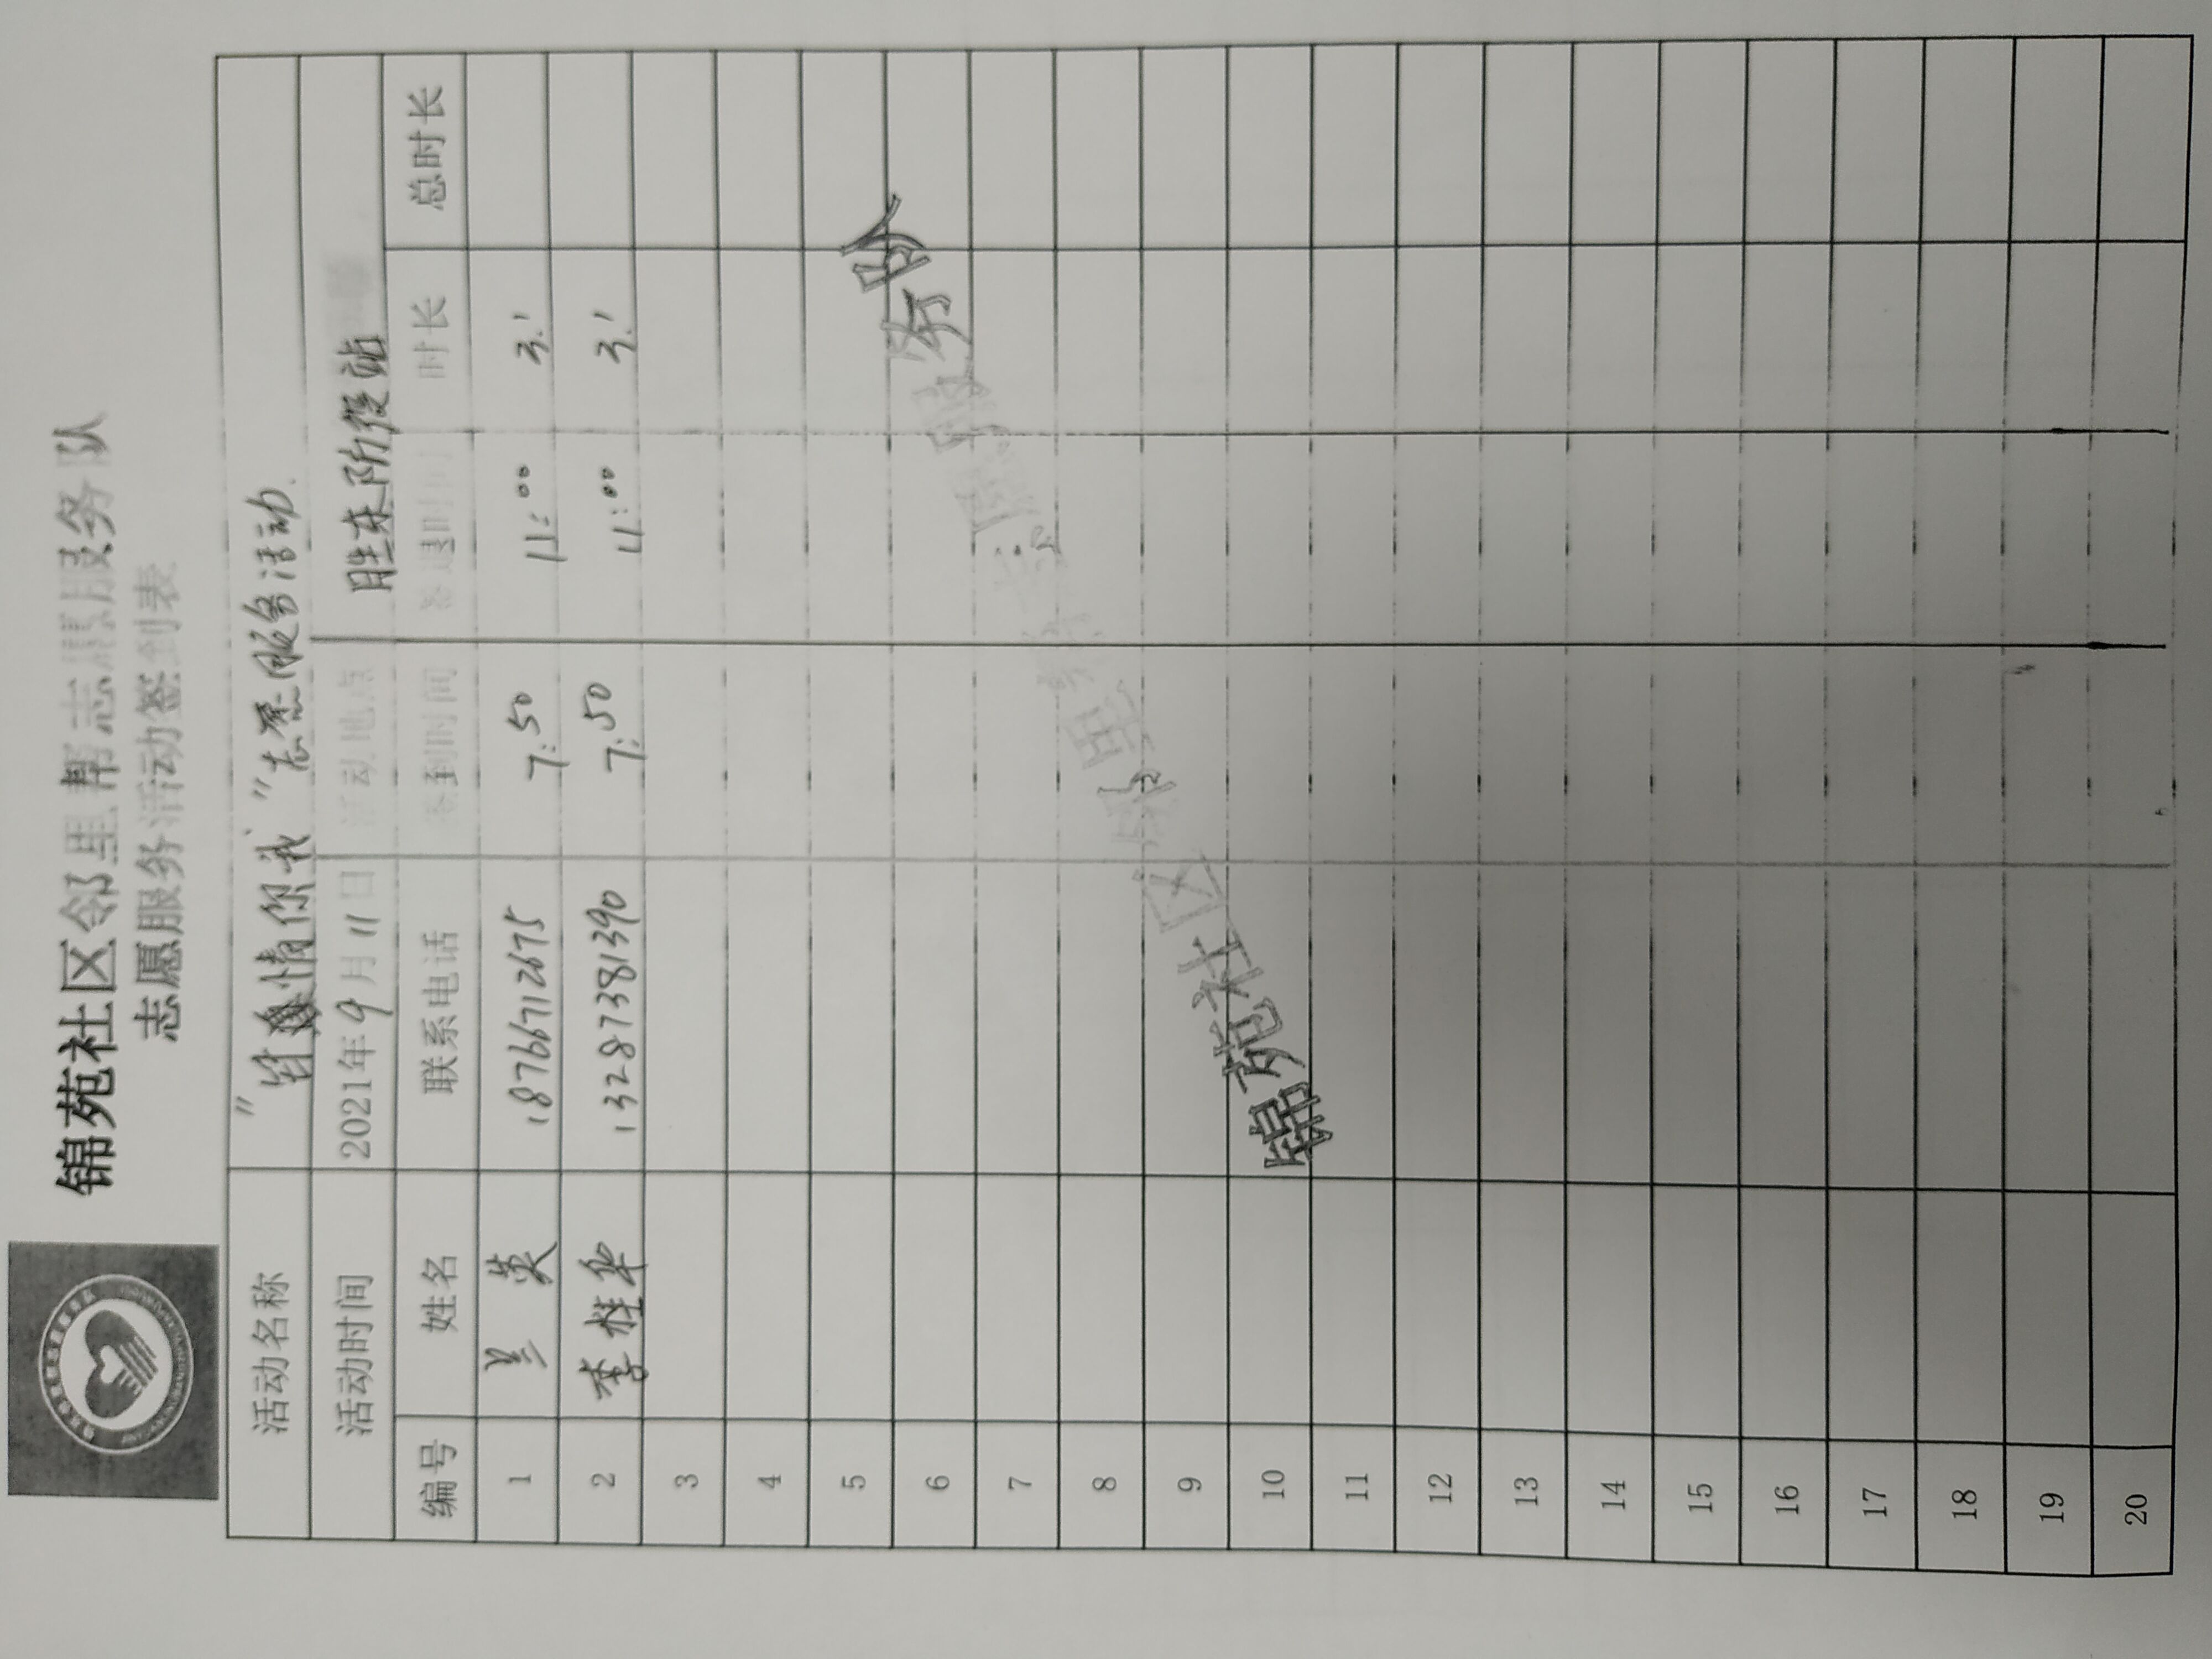 锦苑社区邻里帮志愿服务队
志愿服务活动签到表
活动名称 情你我"志愿服务活动
活动时间 2021年9月11日 活动地点 胜东阶段站
编号 姓名 联系电话 签到时间 签退时间 时长 总时长
1 兰英 18766712675 7:50 11:00 3.1
2 李桂华 13287381390 7:50 11:00 3.1
3
4
5
6
7
8
9
10
11
12
13
14
15
16
17
18
19
20
锦苑社区邻里帮志愿服务队